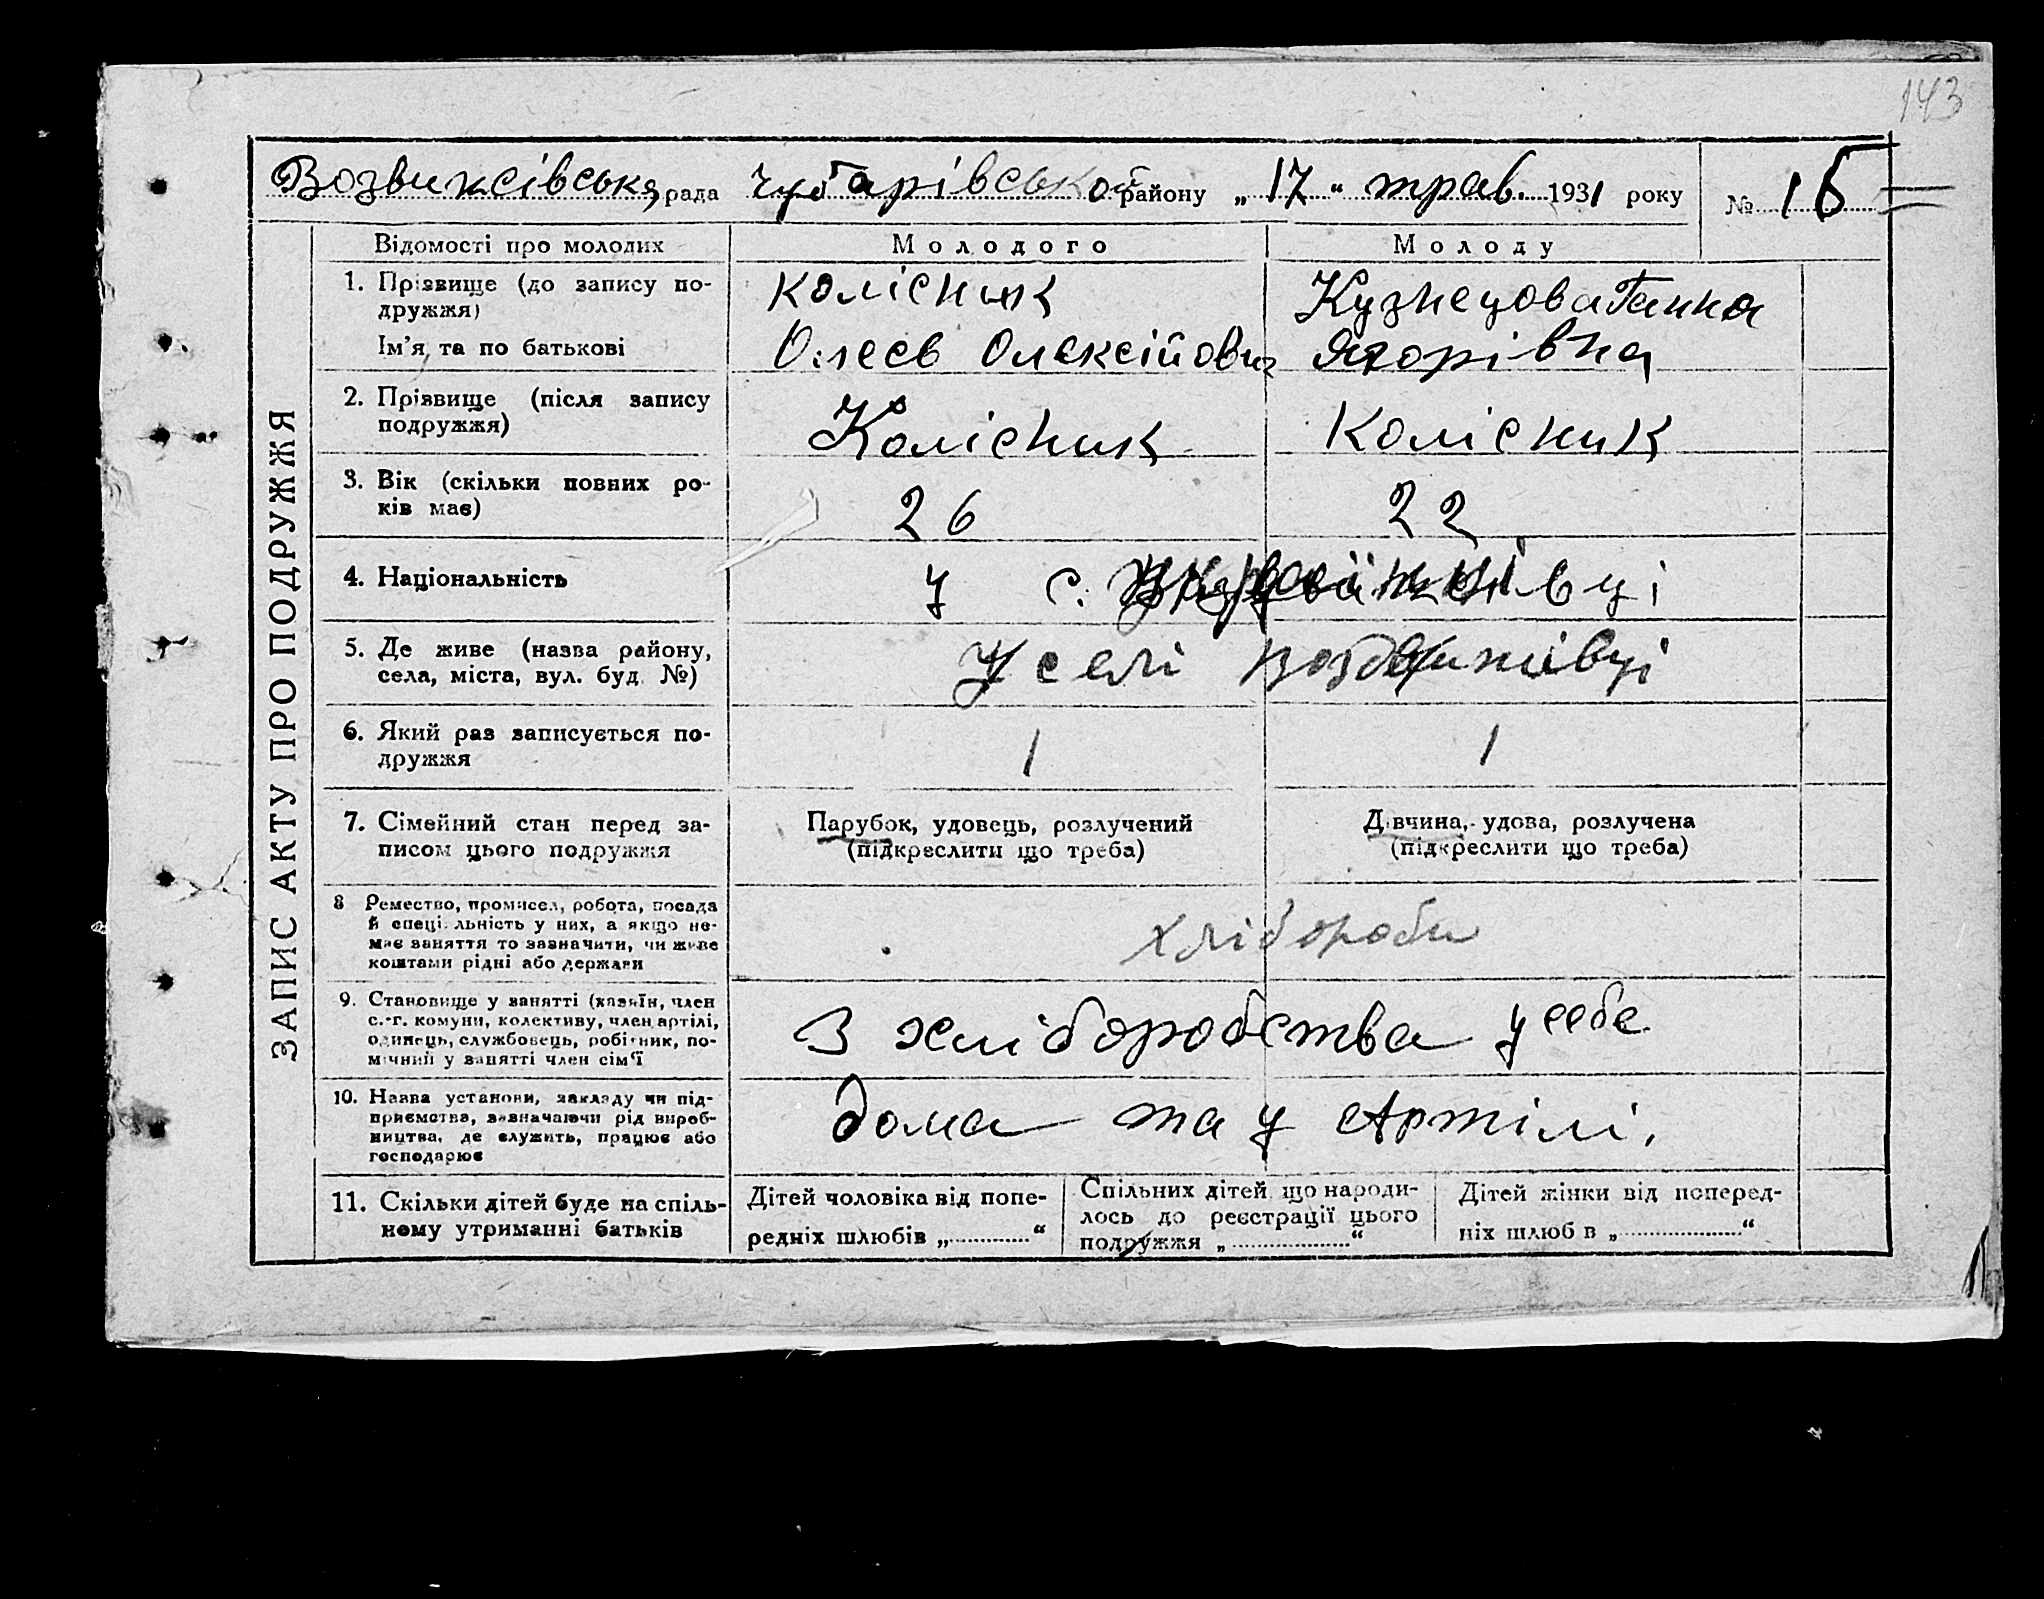 143
Воздвижсівська рада Чубарівського району „17“ трав. 1931 року № 16
ЗАПИС АКТУ ПРО ПОДРУЖЖЯ
Відомості про молодих Молодого Молоду
1. Прізвище (до запису по- Колісник Кузнецова Ганна
дружжя)
Ім'я та по батькові Олексійович Ягорівна
2. Прізвище (після запису Колісник Колісник
подружжя)
3. Вік (скільки повних ро- 26 22
ків має)
4. Національність У с.
5. Де живе (назва району, У селі Воздвижівці
села, міста, вул. буд. №)
6. Який раз записується по- 1 1
дружжя
7. Сімейний стан перед за- Парубок, удовець, розлучений Дівчина, удова, розлучена
писом цього подружжя (підкреслити що треба) (підкреслити що треба)
8 Ремество, промисел, робота, посада хлібороби
й спеціальність у них, а якщо не-
має заняття то зазначити, чи живе
коштами рідні або держави
9. Становище у занятті (хазяїн, член З хліборобства у себе
с.-г. комуни, колективу, член артілі,
одинець, службовець, робітник, по-
мічний у занятті член сім'ї
10. Назва установи, закладу чи під- дома та у Артілі.
приємства, зазначаючи рід вироб-
ництва, де служить, працює або
господарює
11. Скільки дітей буде на спіль- Дітей чоловіка від попе- Спільних дітей що народи- Дітей жінки від поперед-
ному утриманні батьків редніх шлюбів „ “ лось до реєстрації цього ніх шлюбів „ “
подружжя „ “